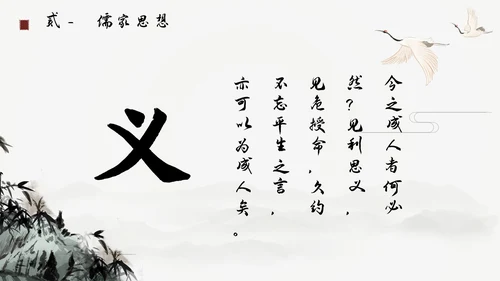 贰- 儒家思想
义
今之成人者何必
然?见利思义,
见危授命,久约
不忘平生之言,
亦可以为成人矣。